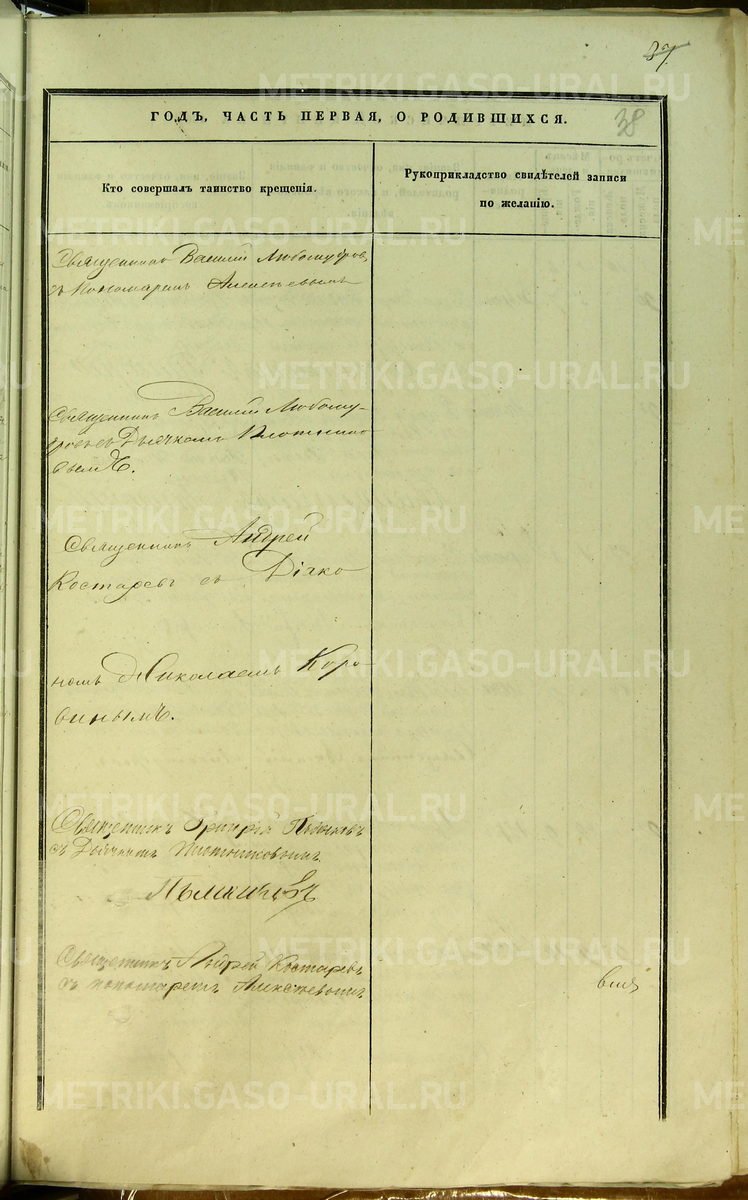 37
38
ГОДЪ, ЧАСТЬ ПЕРВАЯ, О РОДИВШИХСЯ.
Кто совершалъ таинство крещенія.
Рукоприкладство свидѣтелей записи
по желанію.
Священникъ Василій Любомудровъ
съ Пономаремъ Алексѣевымъ
Священникъ Василій Любому-
дровъ съ Дьячкомъ Плотнико
вымъ.
Священникъ Андрей
Костаревъ съ Діако
номъ Николаемъ Коро-
винымъ.
Священникъ Григрій
съ Дьячкомъ Плотниковымъ
Священникъ Андрей Костаревъ
съ пономаремъ Алексѣевымъ
METRIKI.GASO-URAL.RU